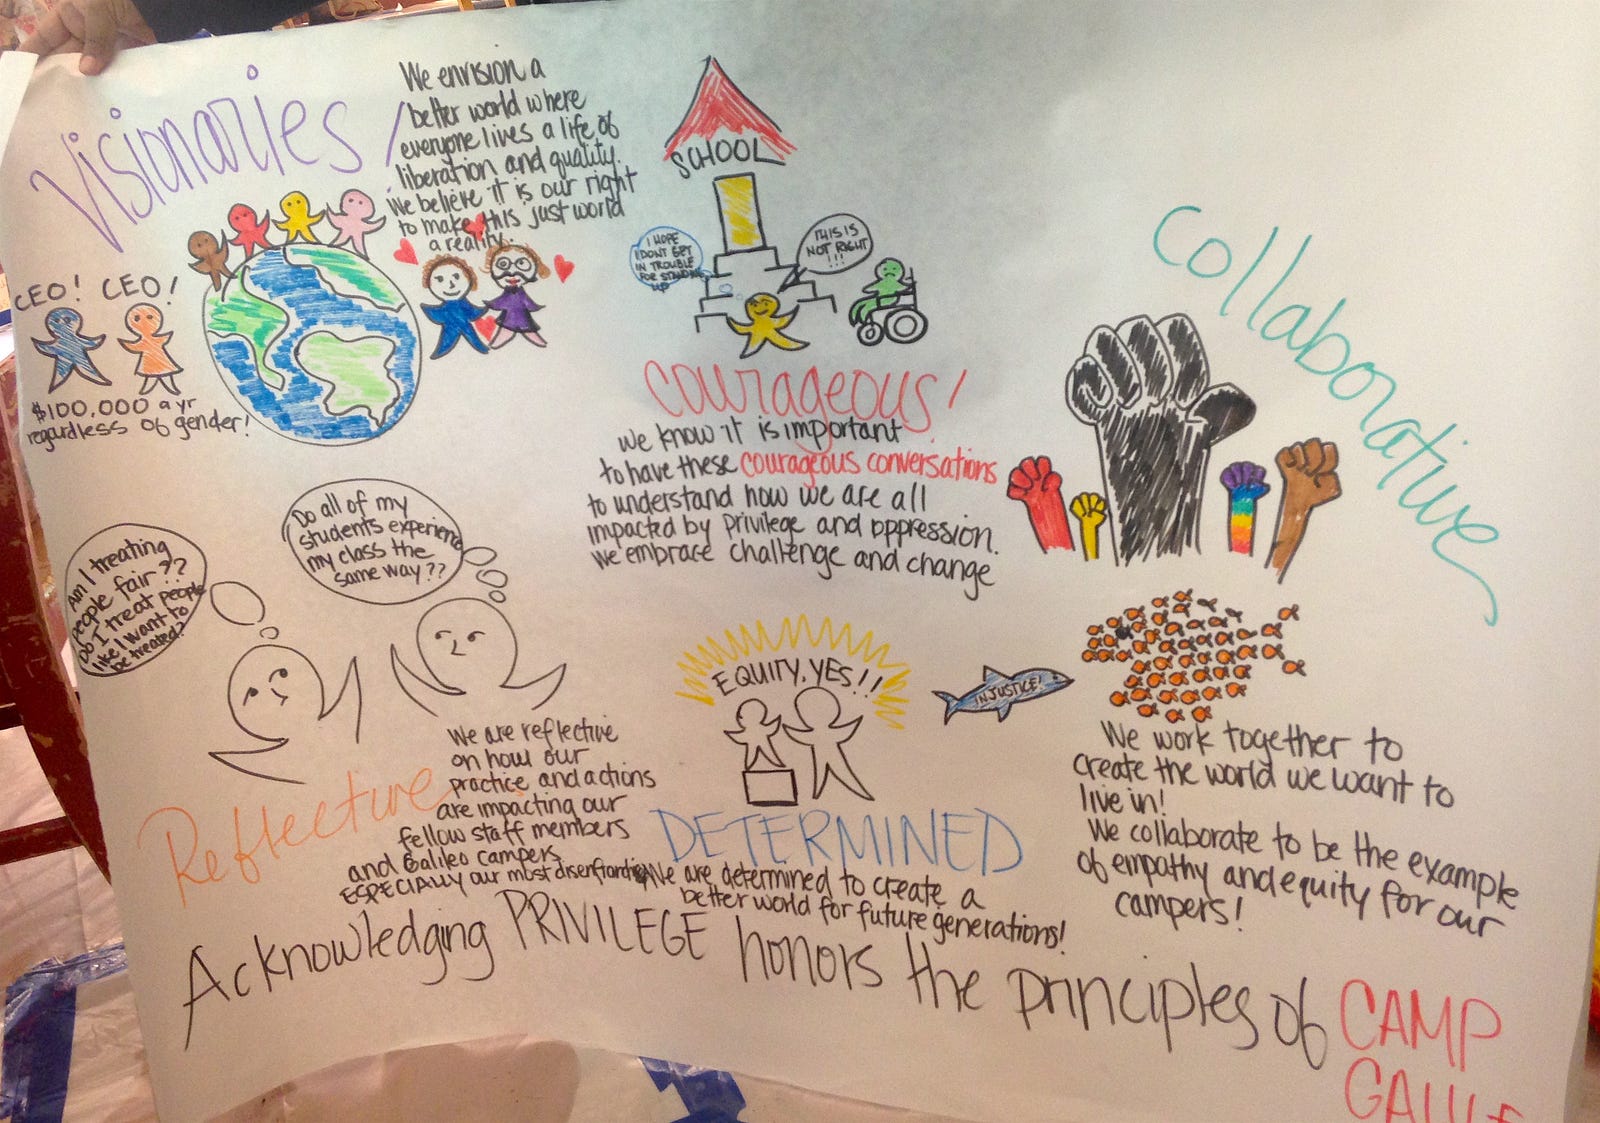 Visionaries!
We envision a
better world where
everyone lives a life of
liberation and quality.
We believe it is our right
to make this just world
a reality.
CEO! CEO!
$100,000 a yr
regardless of gender!
SCHOOL
I HOPE
I DONT GET
IN TROUBLE
FOR STANDING
UP
THIS IS
NOT RIGHT
!!!
Courageous!
We know it is important
to have these courageous conversations
to understand how we are all
impacted by privilege and oppression.
We embrace challenge and change
Collaborative
INJUSTICE!
We work together to
create the world we want to
live in!
We collaborate to be the example
of empathy and equity for our
campers!
Am I treating
people fair??
Do I treat people
like I want to
be treated?
Do all of my
students experience
my class the
same way??
Reflective
We are reflective
on how our
practice and actions
are impacting our
fellow staff members
and Galileo campers
ESPECIALLY our most
EQUITY, YES!!
DETERMINED
We are determined to create a
better world for future generations!
Acknowledging PRIVILEGE honors the principles of CAMP